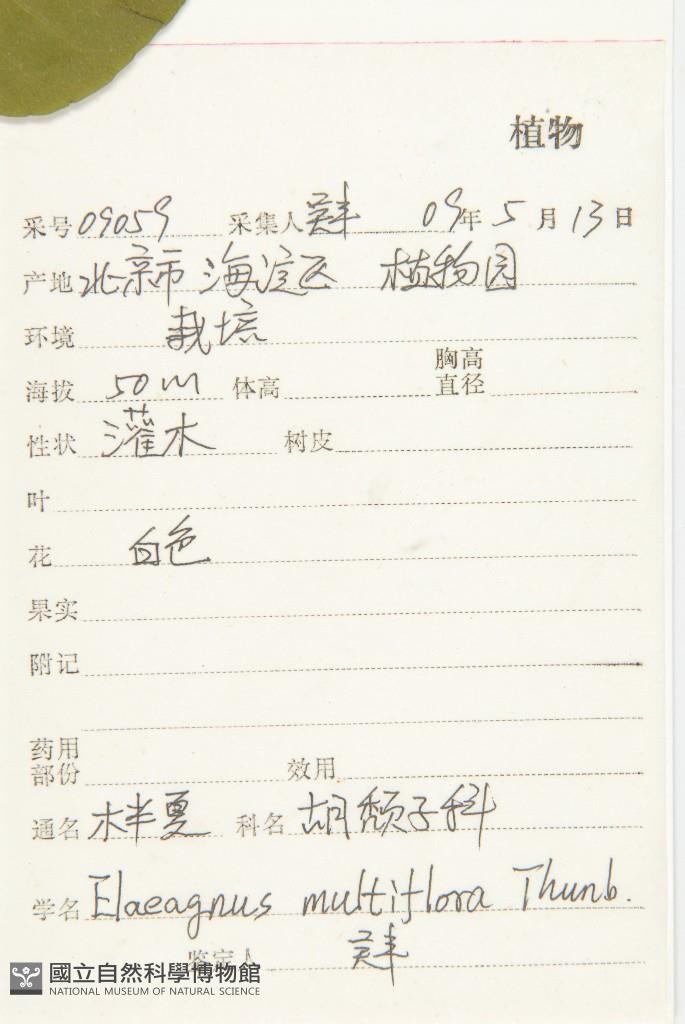 植物
采号 09059 采集人 吴丰 09年 5月 13日
产地 北京市 海淀区 植物园
环境 栽培
海拔 50m 体高 胸高直径
性状 灌木 树皮
叶
花 白色
果实
附记
药用部份 效用
通名 木半夏 科名 胡颓子科
学名 Elaeagnus multiflora Thunb.
鉴定人
國立自然科學博物館
NATIONAL MUSEUM OF NATURAL SCIENCE